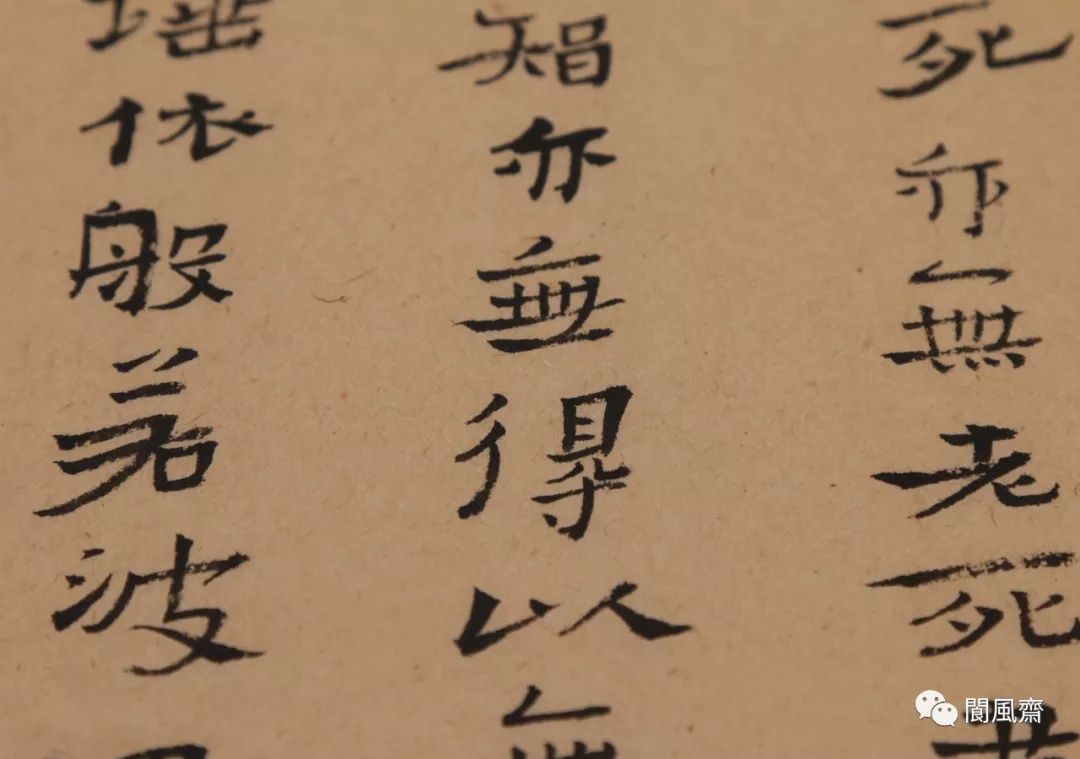 死亦無老死
智亦無得以無
埵依般若波
閬風齋